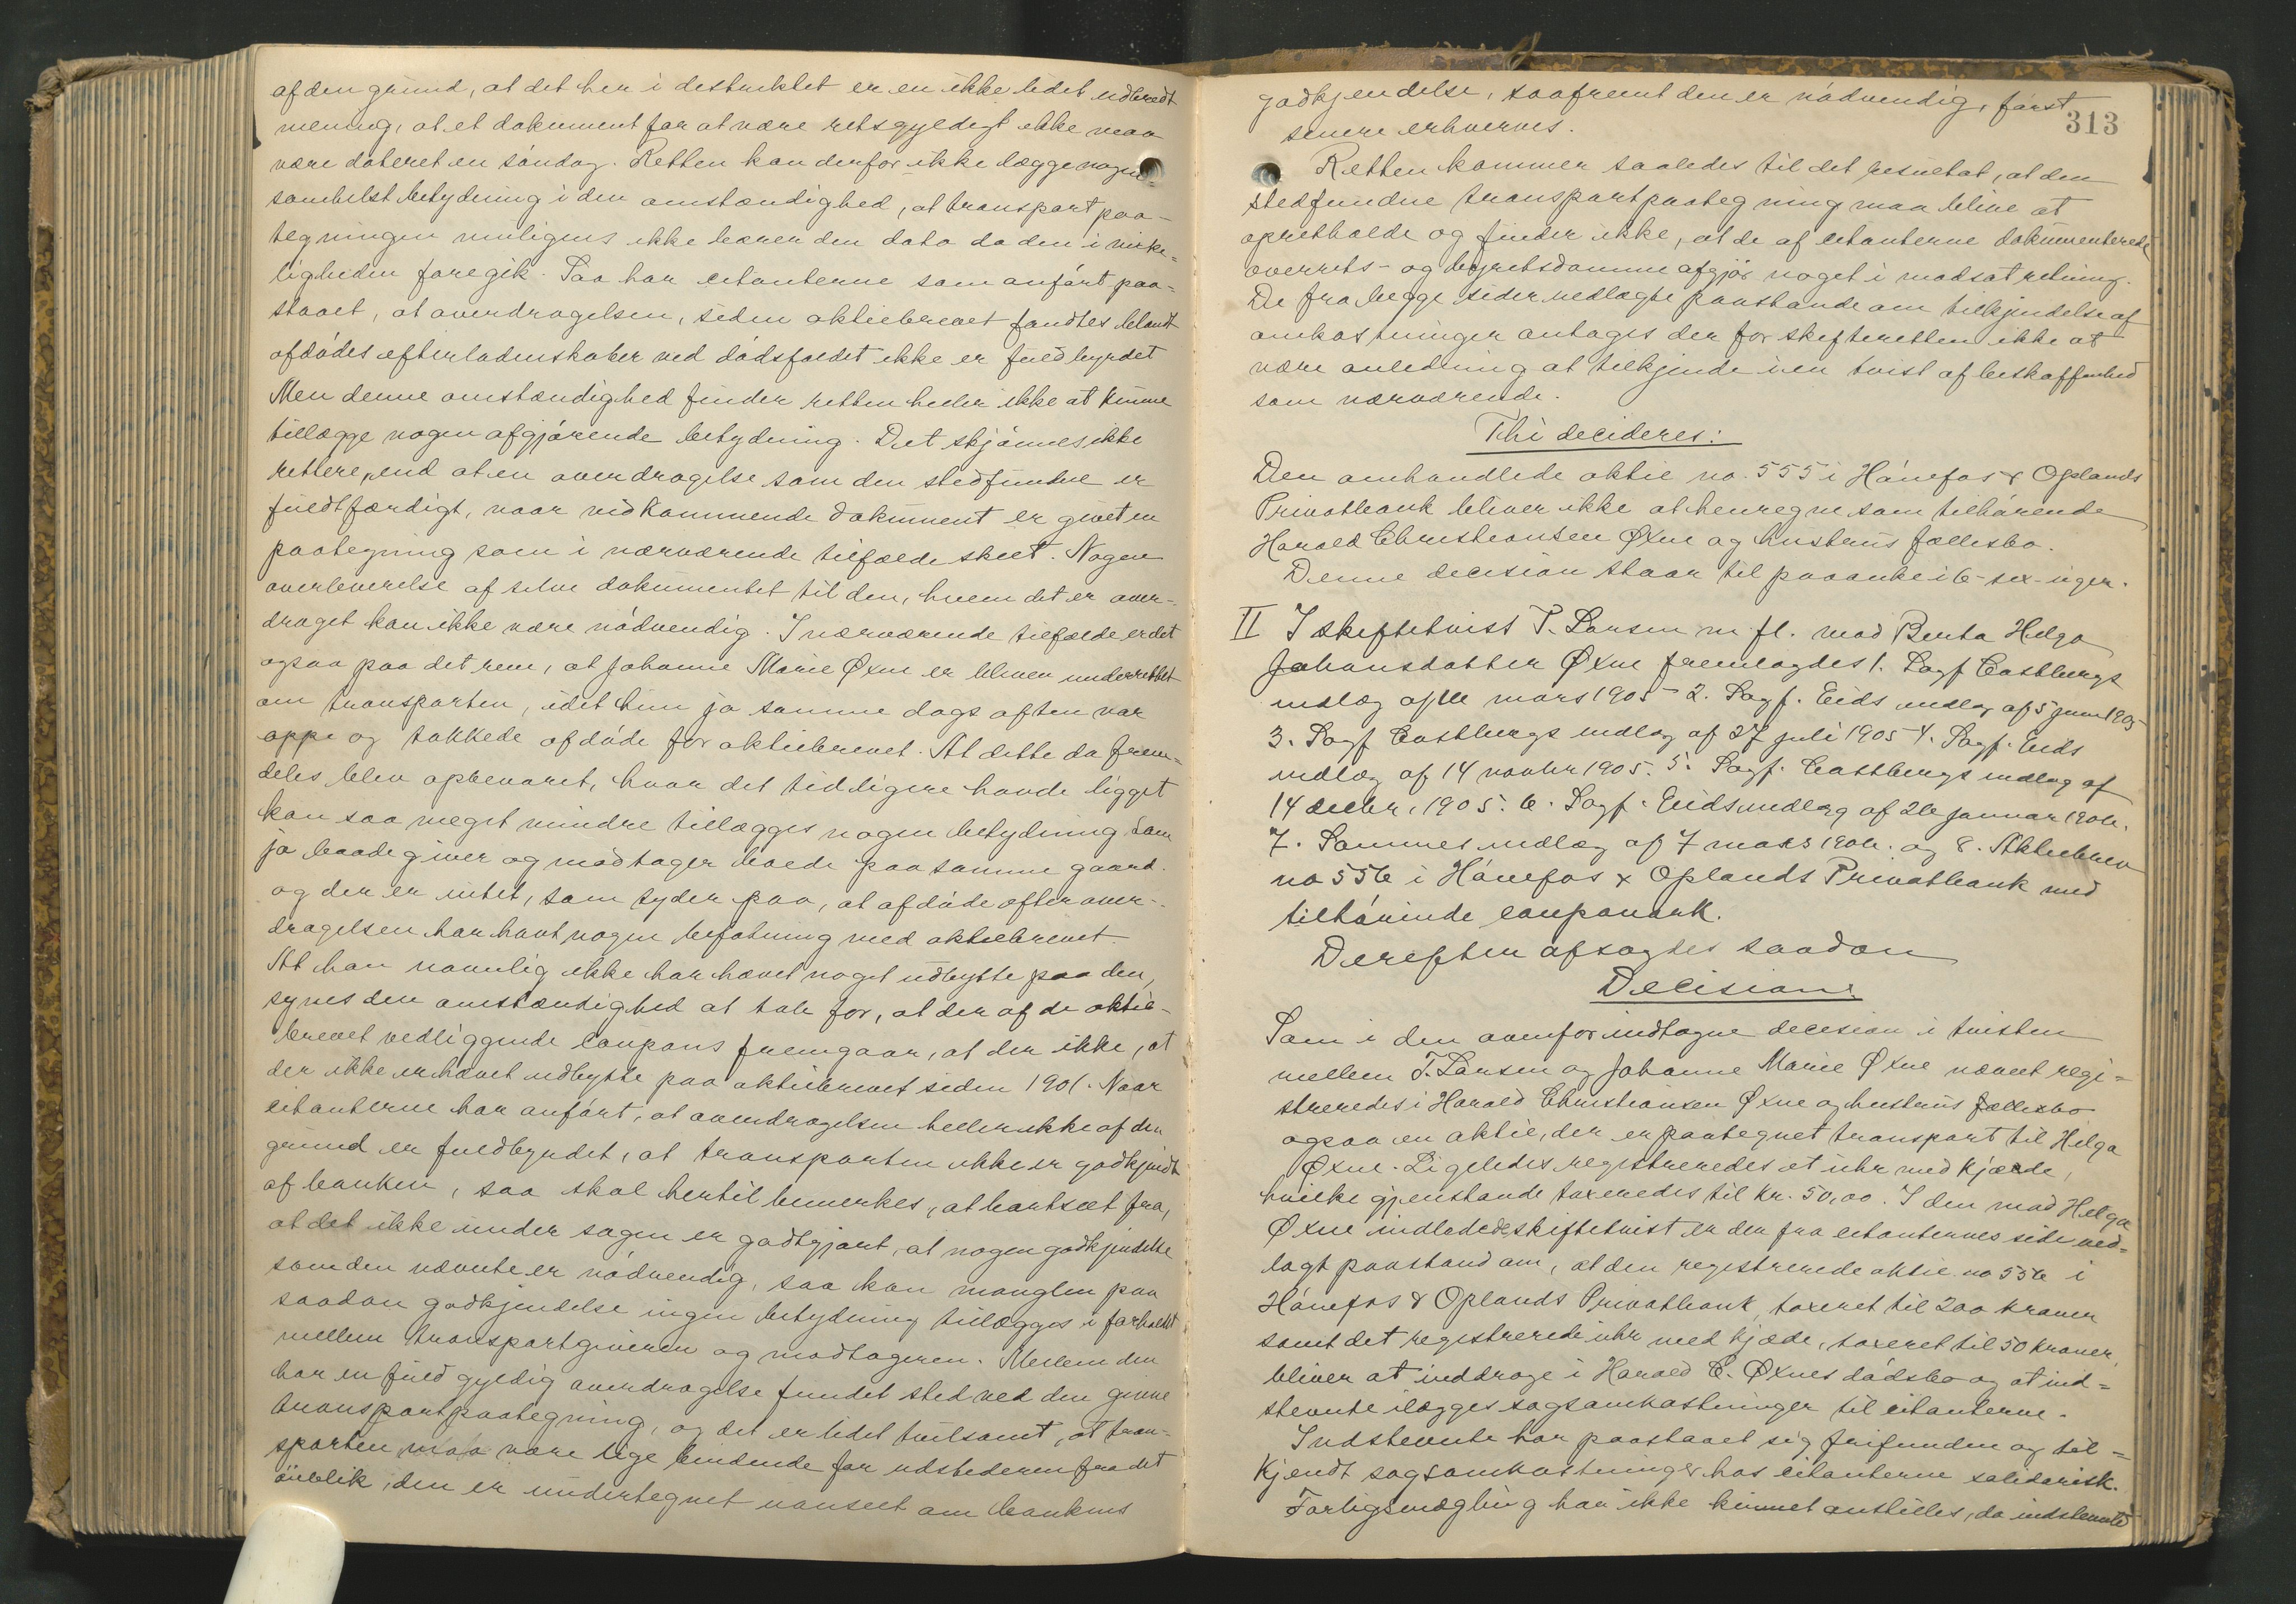 af den grund, at det her i destriktet er en ikke lidet udbredt
mening, at et dokument for at være retsgyldigt ikke maa
være dateret en søndag. Retten kan derfor ikke lægge nogen-
somhelst betydning i den omstændighed, at transport paa-
tegningen muligens ikke bærer den dato da den i virke-
ligheden foregik. Saa har citanterne som anført paa-
staaet, at overdragelsen, siden aktiebrevet fandtes blandt
afdødes efterladenskaber ved dødsfaldet ikke er fuldbyrdet
Men denne omstændighed finder retten heller ikke at kunne
tillægge nogen afgjørende betydning. Det skjønnes ikke
rettere, end at en overdragelse som den stedfundne er
fuldtfærdigt, naar vedkommende dokument er givet en
paategning som i nærværende tilfælde skeet. Nogen
overleverelse af selve dokumentet til den, hvem det er over-
draget kan ikke være nødvendig. I nærværende tilfælde er det
ogsaa paa det rene, at Johanne Marie Øxne er bleven underrettet
om transporten, idet hun jo samme dags aften var
oppe og takkede afdøde for aktiebrevet. At dette da frem-
deles blev opbevaret, hvor det tidligere havde ligget
kan saa meget mindre tillægges nogen betydning som
jo baade giver og modtager boede paa samme gaard.
og der er intet, som tyder paa, at afdøde efter over-
dragelsen har havt nogen befatning med aktiebrevet.
At han navnlig ikke har hævet noget udbytte paa den,
synes den omstændighed at tale for, at der af de aktie-
brevet vedliggende coupons fremgaar, at der ikke, at
der ikke er hævet udbytte paa aktiebrevet siden 1901. Naar
citanterne har anført, at overdragelsen heller ikke af den
grund er fuldbyrdet, at transporten ikke er godkjendt
af banken, saa skal hertil bemerkes, at bortseet fra,
at det ikke under sagen er godtgjort, at nogen godkjendelse
som den nævnte er nødvendig, saa kan manglen paa
saadan godkjendelse ingen betydning tillægges i forholdet
mellem transportgiveren og modtageren. Mellem dem
har en fuld gyldig overdragelse fundet sted ved den givne
transportpaategning, og det er lidet tvilsomt, at tran-
sporten maa være lige bindende for udstederen fra det
øieblik, den er undertegnet uanseet om bankens
313
godkjendelse, saafremt den er nødvendig, først
senere erhverves.
Retten kommer saaledes til det resultat, at den
stedfundne transportpaategning maa blive at
opretholde og finder ikke, at de af citanterne dokumenterede
overrets- og byretsdomme afgjør noget i modsat retning.
De fra begge sider nedlagte paastande om tilkjendelse af
omkostninger antages der for skifteretten ikke at
være anledning at tilkjende i en tvist af beskaffenhed
som nærværende.
Thi decideres:
Den omhandlede aktie no. 555 i Hønefos & Oplands
Privatbank bliver ikke at henregne som tilhørende
Harald Christiansen Øxne og hustrus fællesbo.
Denne decision staar til paaanke i 6-sex-uger.
II I skiftetvist T. Larsen m fl. mod Berta Helga
Johansdatter Øxne fremlagdes 1. Sagf Castbergs
indlæg af 16 mars 1905 - 2. Sagf. Eids indlæg af 5 juni 1905
3. Sagf Castbergs indlæg af 27 juli 1905 4. Sagf. Eids
indlæg af 14 novbr 1905. 5. Sagf. Castbergs indlæg af
14 decbr. 1905. 6. Sagf. Eids indlæg af 26 januar 1906.
7. Sammes indlæg af 7 mars 1906. og 8. Aktiebrev
no 556 i Hønefos & Oplands Privatbank med
tilhørende coupouark.
Derefter afsagdes saadan
Decision
Som i den ovenfor indtagne decision i tvisten
mellem T. Larsen og Johanne Marie Øxne nævnt regi-
streredes i Harald Christiansen Øxne og hustrus fællesbo
ogsaa en aktie, der er paategnet transport til Helga
Øxne. Ligeledes registreredes et uhr med kjæde,
hvilke gjenstande taxeredes til kr. 50,00. I den mod Helga
Øxne indledede skiftetvist er der fra citanternes side ned-
lagt paastand om, at den registrerede aktie no 556 i
Hønefos & Oplands Privatbank taxeret til 200 kroner
samt det registrerede uhr med kjæde, taxeret til 50 kroner,
bliver at inddrage i Harald C. Øxnes dødsbo og at ind-
stevnte ilægges sagsomkostninger til citanterne.
Indstevnte har paastaaet sig frifunden og til-
kjendt sagsomkostninger hos citanterne solidarisk.
Forligsmægling har ikke kunnet anstilles, da indstevnte